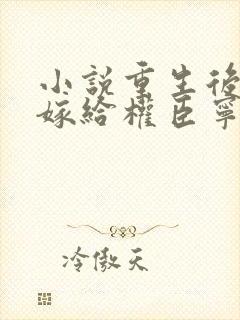 小說重生後
嫁給權臣寧
冷傲天